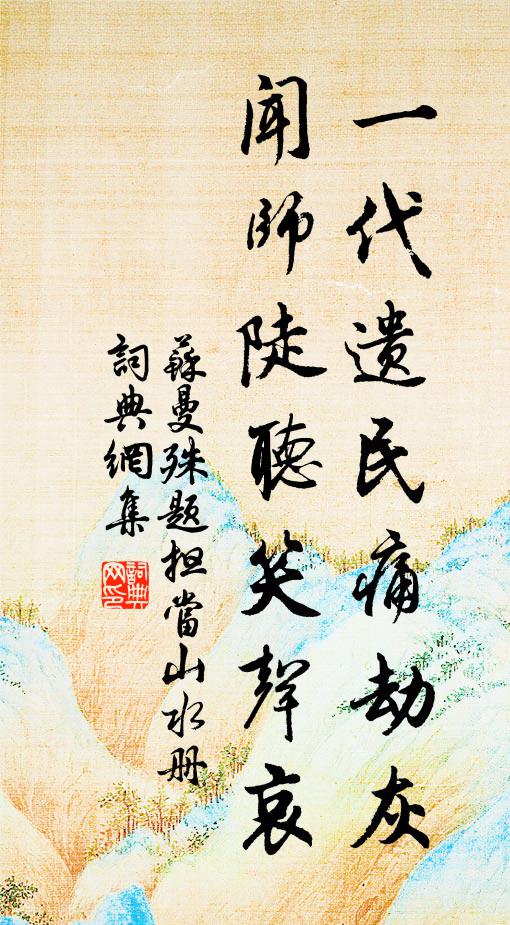 一代遗民痛劫灰
闻师陡聽笑聲哀
蘇曼殊題担當山水册
詞典網集
詞典网印